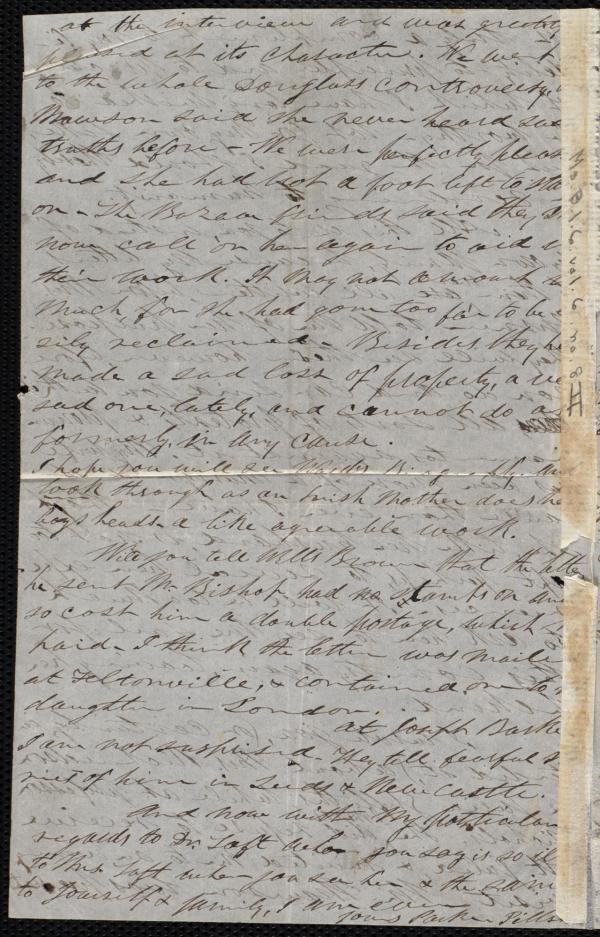 at the interview and was greatly
at its character. We went
to the whole Douglass controversy,
Mawson said she never heard su
truths before - We were perfectly pleas
and she had not a foot left to sta
on - The Bazaar friends said they
now call on her again to aid
their work. It may not amount
much, for she had gone too far to be
sily reclaimed - Besides, they h
made a sad loss of property, a ve
sad one, lately, and cannot do as
formerly, in any cause.
I hope you will see
look through as an Irish mother does he
boys heads - a like agreeable work.
Will you tell Wm Brown that the lette
he sent Mr. Bishop had no stamps on an
so cost him a double postage, which
paid - I think the letter was maile
at Feltonville, & contained one to
daughter in London.
at Joseph Barke
I am not surprised. They tell fearful s
ries of him in Leeds & Newcastle.
And now with my particular
regards to Dr. Taft who you say is so il
to Mrs. Taft when you see her & the same
to yourself & family, I am ever
Yours Parker Pills
No. B.1.6 vol. 6 no. 8 II